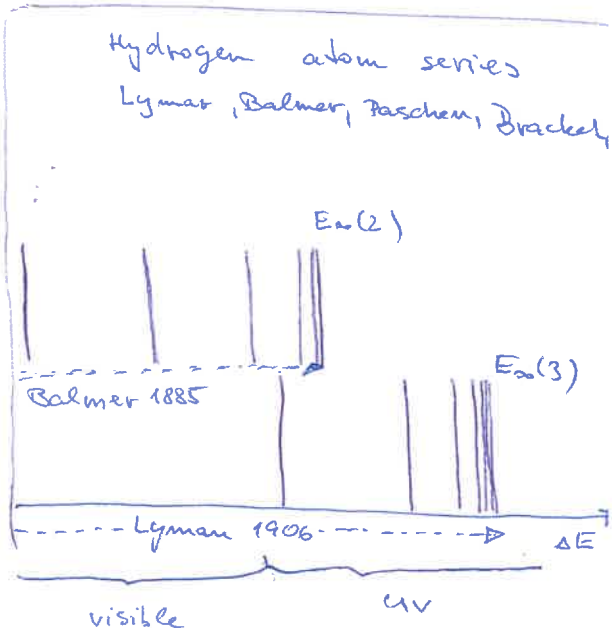 Hydrogen atom series
Lyman, Balmer, Paschen, Bracket,
E∞(2)
E∞(3)
Balmer 1885
Lyman 1906
ΔE
visible
uv